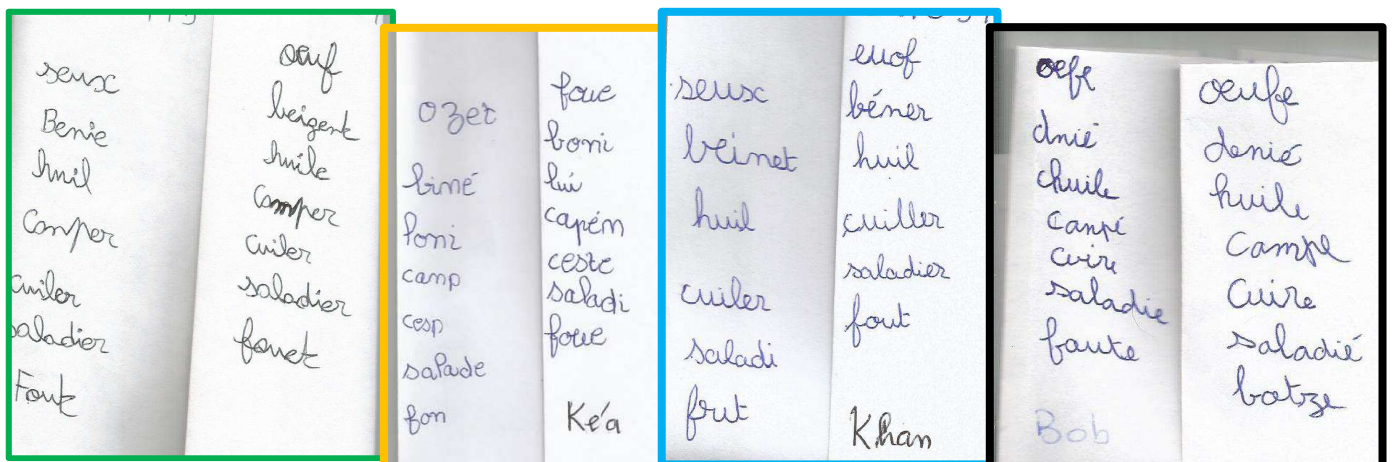 seux
Benie
huil
Camper
cuiler
saladier
Fout
œuf
beigent
huile
Camper
Cuiler
saladier
fouet
ozet
biné
loni
camp
cesp
salade
fon
foue
boni
lui
capém
ceste
saladi
foue
Kéa
seusc
beinet
huil
cuiler
saladi
frut
euof
béner
huil
cuiller
saladier
fout
Khan
oefe
dnié
chuile
canpé
cuire
saladie
faute
Bob
oeufe
denié
huile
Campe
Cuire
saladié
batze